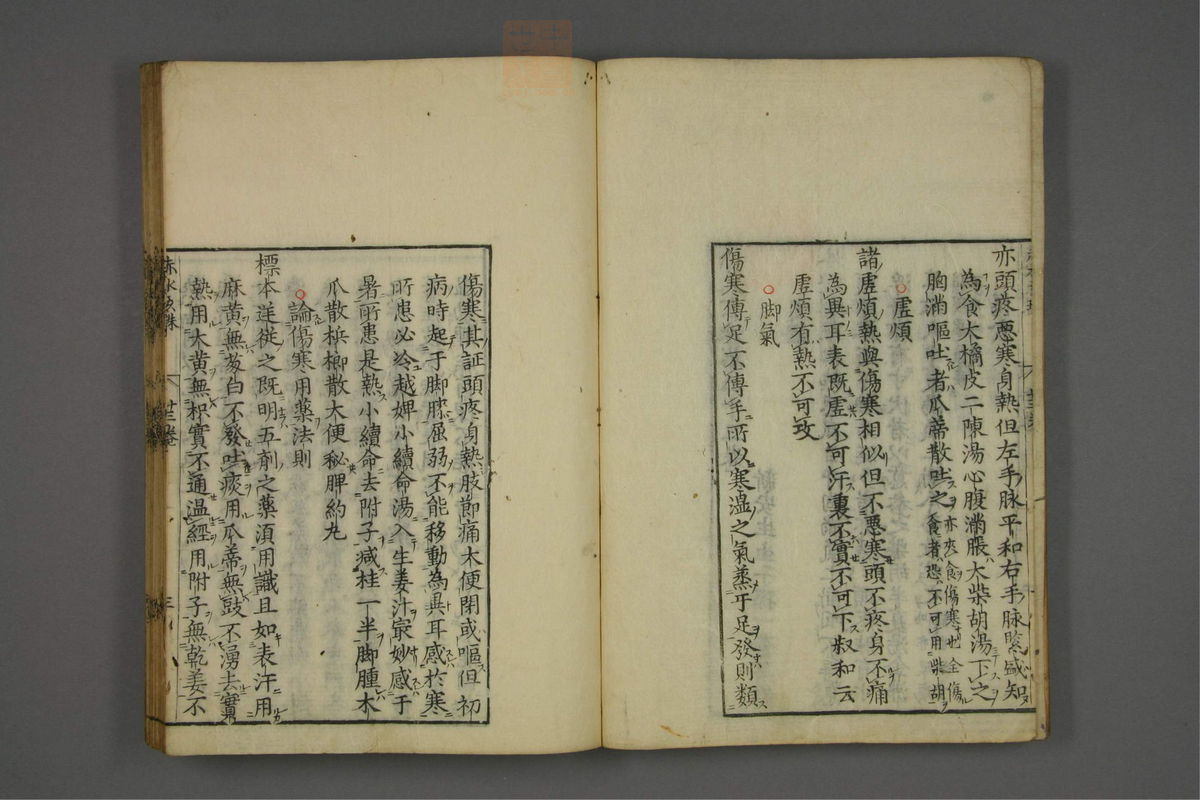 亦頭疼悪寒身熱但左手脉平和右手脉緊盛知
為食大橘皮二陳湯心腹滿脹大柴胡湯下之
胸滿嘔吐者瓜蒂散吐之亦夾食傷寒也全傷食者恐不可用柴胡
虛煩
諸虛煩熱與傷寒相似但不悪寒頭不疼身不痛
為異耳表既虛不可汗裏不實不可下叔和云
虛煩有熱不可攻
脚氣
傷寒傳足不傳手所以寒溫之氣蒸于足發則類
傷寒其証頭疼身熱肢節痛大便閉或嘔但初
病時起于脚膝屈弱不能移動為異耳感於寒
所患必冷越婢小續命湯入生姜汁㝡妙感于
暑所患是熱小續命去附子减桂一半脚腫木
瓜散梹榔散大便秘脾約丸
論傷寒用藥法則
標本逆從之既明五剤之藥湏用識且如表汗用
麻黄無葱白不發吐痰用瓜蒂無豉不湧去實
熱用大黄無枳實不通温經用附子無乾姜不
赤水玄珠 十三卷 三